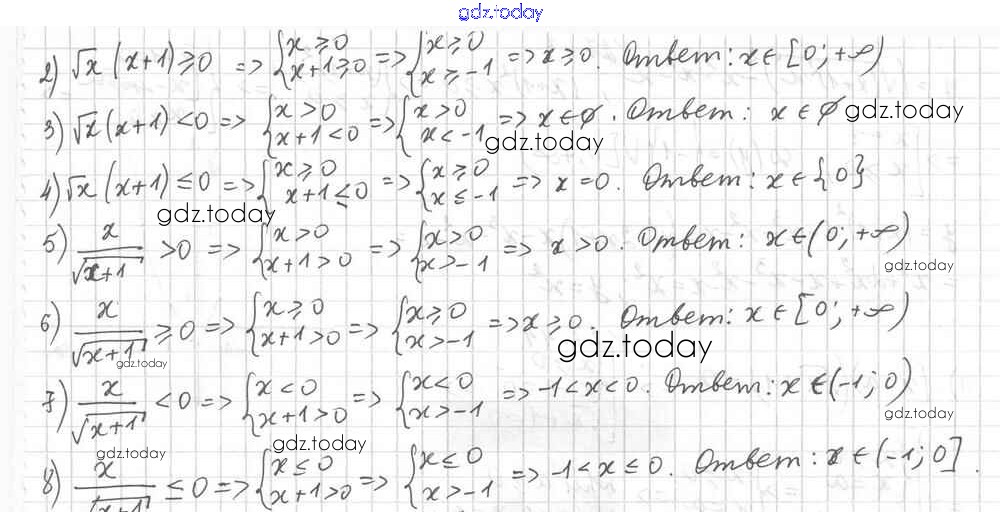 gdz.today
2) √x (x+1) ≥ 0 => {x ≥ 0 x+1 ≥ 0 => {x ≥ 0 x ≥ -1 => x ≥ 0. Ответ: x ∈ [0; +∞)
3) √x (x+1) < 0 => {x > 0 x+1 < 0 => {x > 0 x < -1 => x ∈ ∅. Ответ: x ∈ ∅ gdz.today
gdz.today
4) √x (x+1) ≤ 0 => {x ≥ 0 x+1 ≤ 0 => {x ≥ 0 x ≤ -1 => x = 0. Ответ: x ∈ {0}
gdz.today
5) x/√(x+1) > 0 => {x > 0 x+1 > 0 => {x > 0 x > -1 => x > 0. Ответ: x ∈ (0; +∞)
gdz.today
6) x/√(x+1) ≥ 0 => {x ≥ 0 x+1 > 0 => {x ≥ 0 x > -1 => x ≥ 0. Ответ: x ∈ [0; +∞)
gdz.today
gdz.today
7) x/√(x+1) < 0 => {x < 0 x+1 > 0 => {x < 0 x > -1 => -1 < x < 0. Ответ: x ∈ (-1; 0)
gdz.today
gdz.today
gdz.today
8) x/√(x+1) ≤ 0 => {x ≤ 0 x+1 > 0 => {x ≤ 0 x > -1 => -1 < x ≤ 0. Ответ: x ∈ (-1; 0].